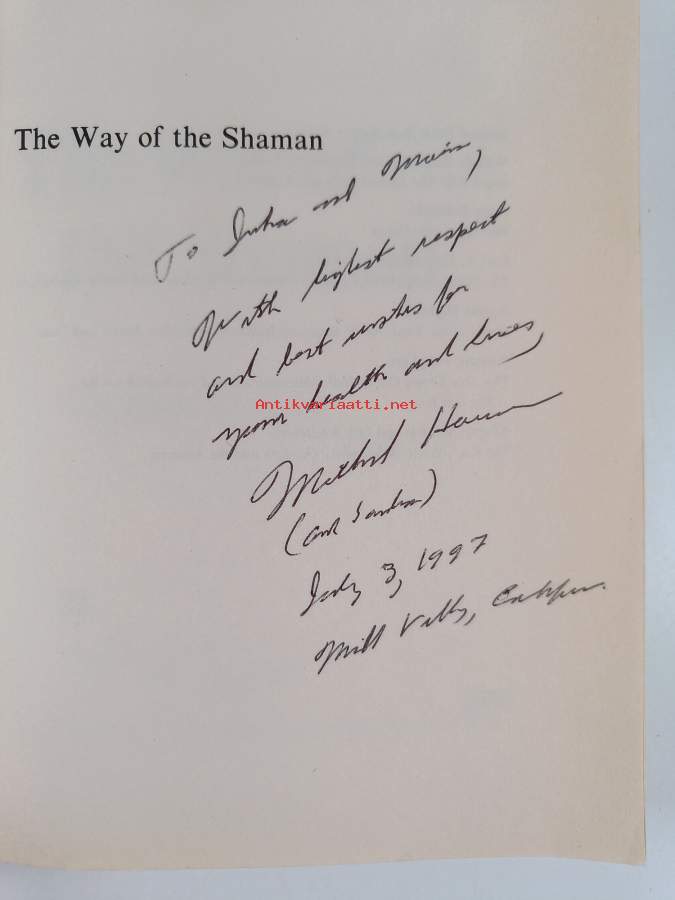 The Way of the Shaman
To Juha and
With highest respect
and best wishes for
your health and lives,
Antikvariaatti.net
Michael Harner
(and Sandra)
July 3, 1997
Mill Valley, Califor.